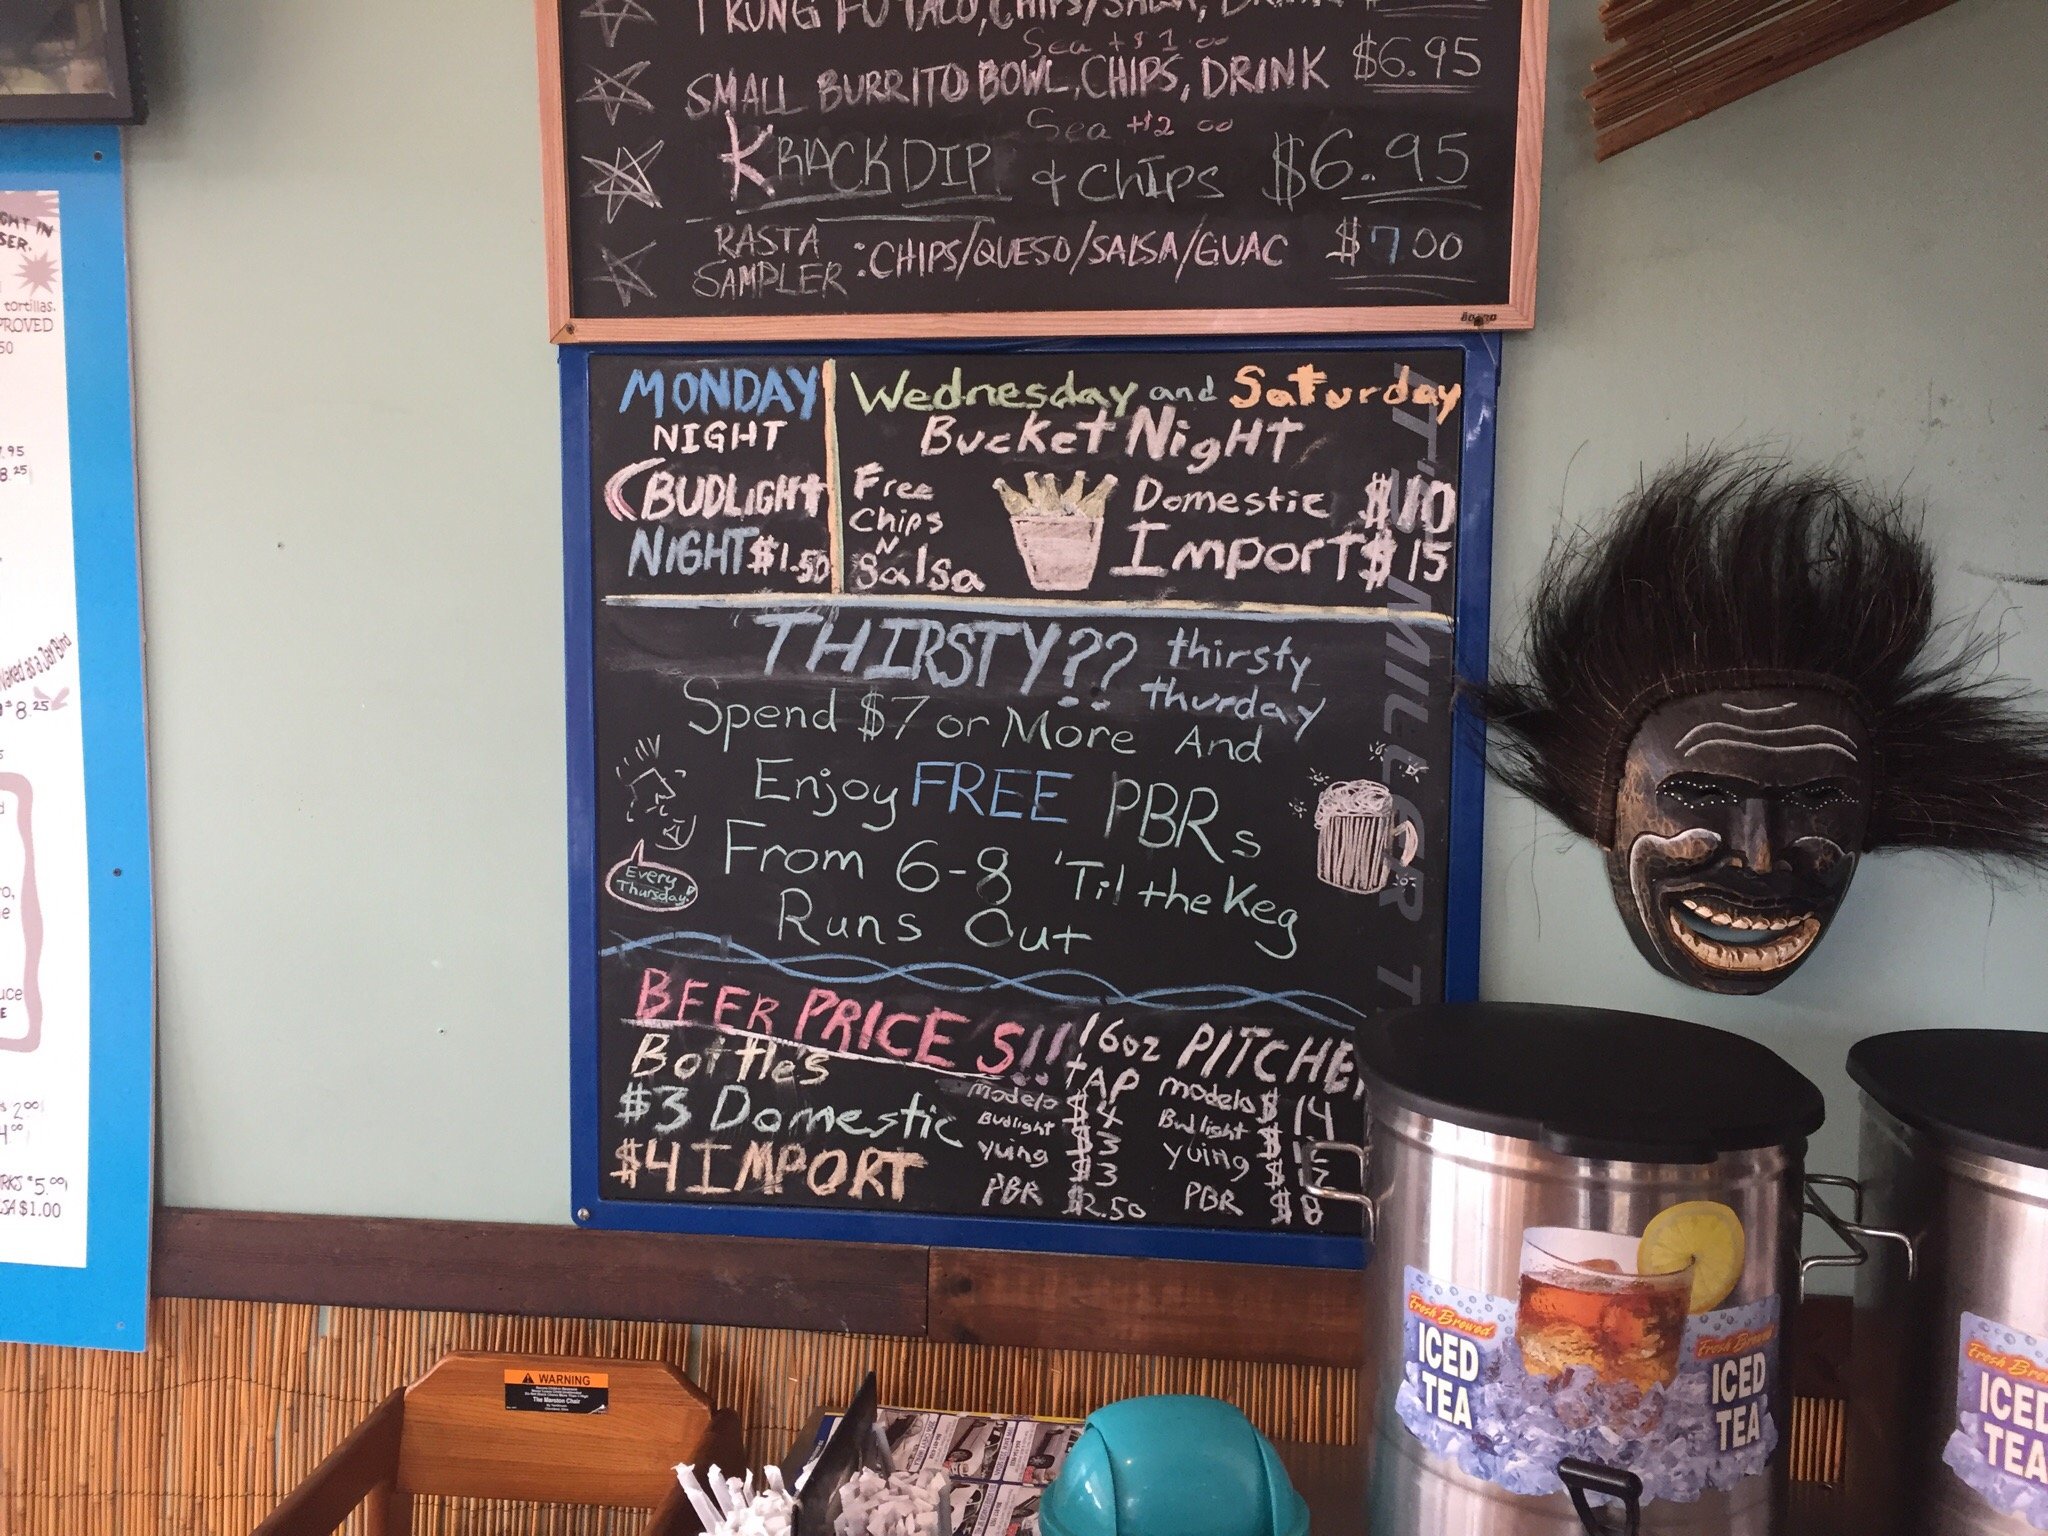 1 KUNG FU TACO, CHIPS/SALSA, DRINK
Sea +$1.00
SMALL BURRITO BOWL, CHIPS, DRINK $6.95
Sea +$2.00
KRACK DIP & CHIPS $6.95
RASTA SAMPLER : CHIPS/QUESO/SALSA/GUAC $7.00
MONDAY
NIGHT
BUDLIGHT
NIGHT $1.50
Wednesday and Saturday
Bucket Night
Free
Chips
N
Salsa
Domestic $10
Import $15
IT'S MILLER T
THIRSTY??
thirsty
thurday
Spend $7 or More And
Enjoy FREE PBRs
From 6-8 'Til the Keg
Runs Out
Every
Thursday!
BEER PRICES!!
Bottle's
$3 Domestic
$4 IMPORT
16oz
TAP
Modelo $4
Budlight $3
Yuing $3
PBR $2.50
PITCHE
Modelo $14
Budlight $12
Yuing $12
PBR $8
GHT IN
SER.
tortillas.
PROVED
50
.95
8.25
Naked as a Jay Bird
$8.25
uce
E
2.00
4.00
RKS $5.00
SA $1.00
WARNING
The Marston Chair
Fresh Brewed
ICED
TEA
Fresh Brewed
ICED
TEA
Fresh Bre
ICED
TEA